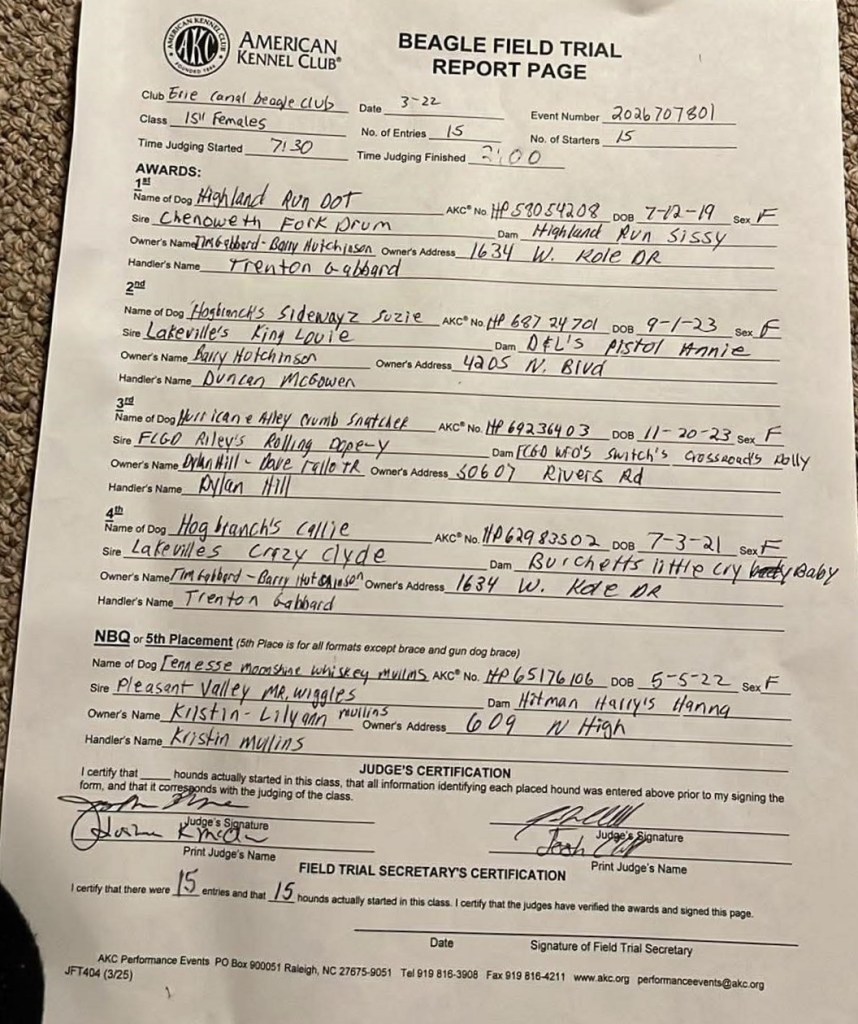 AMERICAN KENNEL CLUB
AKC
FOUNDED 1884
AMERICAN
KENNEL CLUB®
BEAGLE FIELD TRIAL
REPORT PAGE
Club Erie Canal beagle club Date 3-22 Event Number 2026707801
Class 15" Females No. of Entries 15 No. of Starters 15
Time Judging Started 7:30 Time Judging Finished 2:00
AWARDS:
1st
Name of Dog Highland Run DOT AKC® No. HP58054208 DOB 7-12-19 Sex F
Sire Chenoweth Fork Drum Dam Highland Run Sissy
Owner's Name Tim Gabbard - Barry Hutchinson Owner's Address 1634 W. Kole DR
Handler's Name Trenton Gabbard
2nd
Name of Dog Hogbranch's Sidewayz Suzie AKC® No. HP 68724701 DOB 9-1-23 Sex F
Sire Lakeville's King Louie Dam D&L's Pistol Annie
Owner's Name Barry Hutchinson Owner's Address 4205 N. Blvd
Handler's Name Duncan McGowen
3rd
Name of Dog Hurricane Alley Crumb Snatcher AKC® No. HP 69236403 DOB 11-20-23 Sex F
Sire FCGD Riley's Rolling Dam FCGD WFO's Switch's Crossroad's Dolly
Owner's Name Dylan Hill - Dave JR Owner's Address 30607 Rivers Rd
Handler's Name Dylan Hill
4th
Name of Dog Hog branch's Callie AKC® No. HP62983502 DOB 7-3-21 Sex F
Sire Lakevilles Crazy Clyde Dam Burchetts little Cry Baby
Owner's Name Tim Gabbard - Barry Hutchinson Owner's Address 1634 W. Kole DR
Handler's Name Trenton Gabbard
NBQ or 5th Placement (5th Place is for all formats except brace and gun dog brace)
Name of Dog Tennesse moonshine whiskey mullins AKC® No. HP65176106 DOB 5-5-22 Sex F
Sire Pleasant Valley MR. wiggles Dam Hitman Harry's Hanna
Owner's Name Kristin - Lilyann mullins Owner's Address 609 N High
Handler's Name Kristin mullins
JUDGE'S CERTIFICATION
I certify that ____ hounds actually started in this class, that all information identifying each placed hound was entered above prior to my signing the
form, and that it corresponds with the judging of the class.
Judge's Signature Judge's Signature
Josh
Print Judge's Name Print Judge's Name
FIELD TRIAL SECRETARY'S CERTIFICATION
I certify that there were 15 entries and that 15 hounds actually started in this class. I certify that the judges have verified the awards and signed this page.
Date Signature of Field Trial Secretary
AKC Performance Events PO Box 900051 Raleigh, NC 27675-9051 Tel 919 816-3908 Fax 919 816-4211 www.akc.org performanceevents@akc.org
JFT404 (3/25)